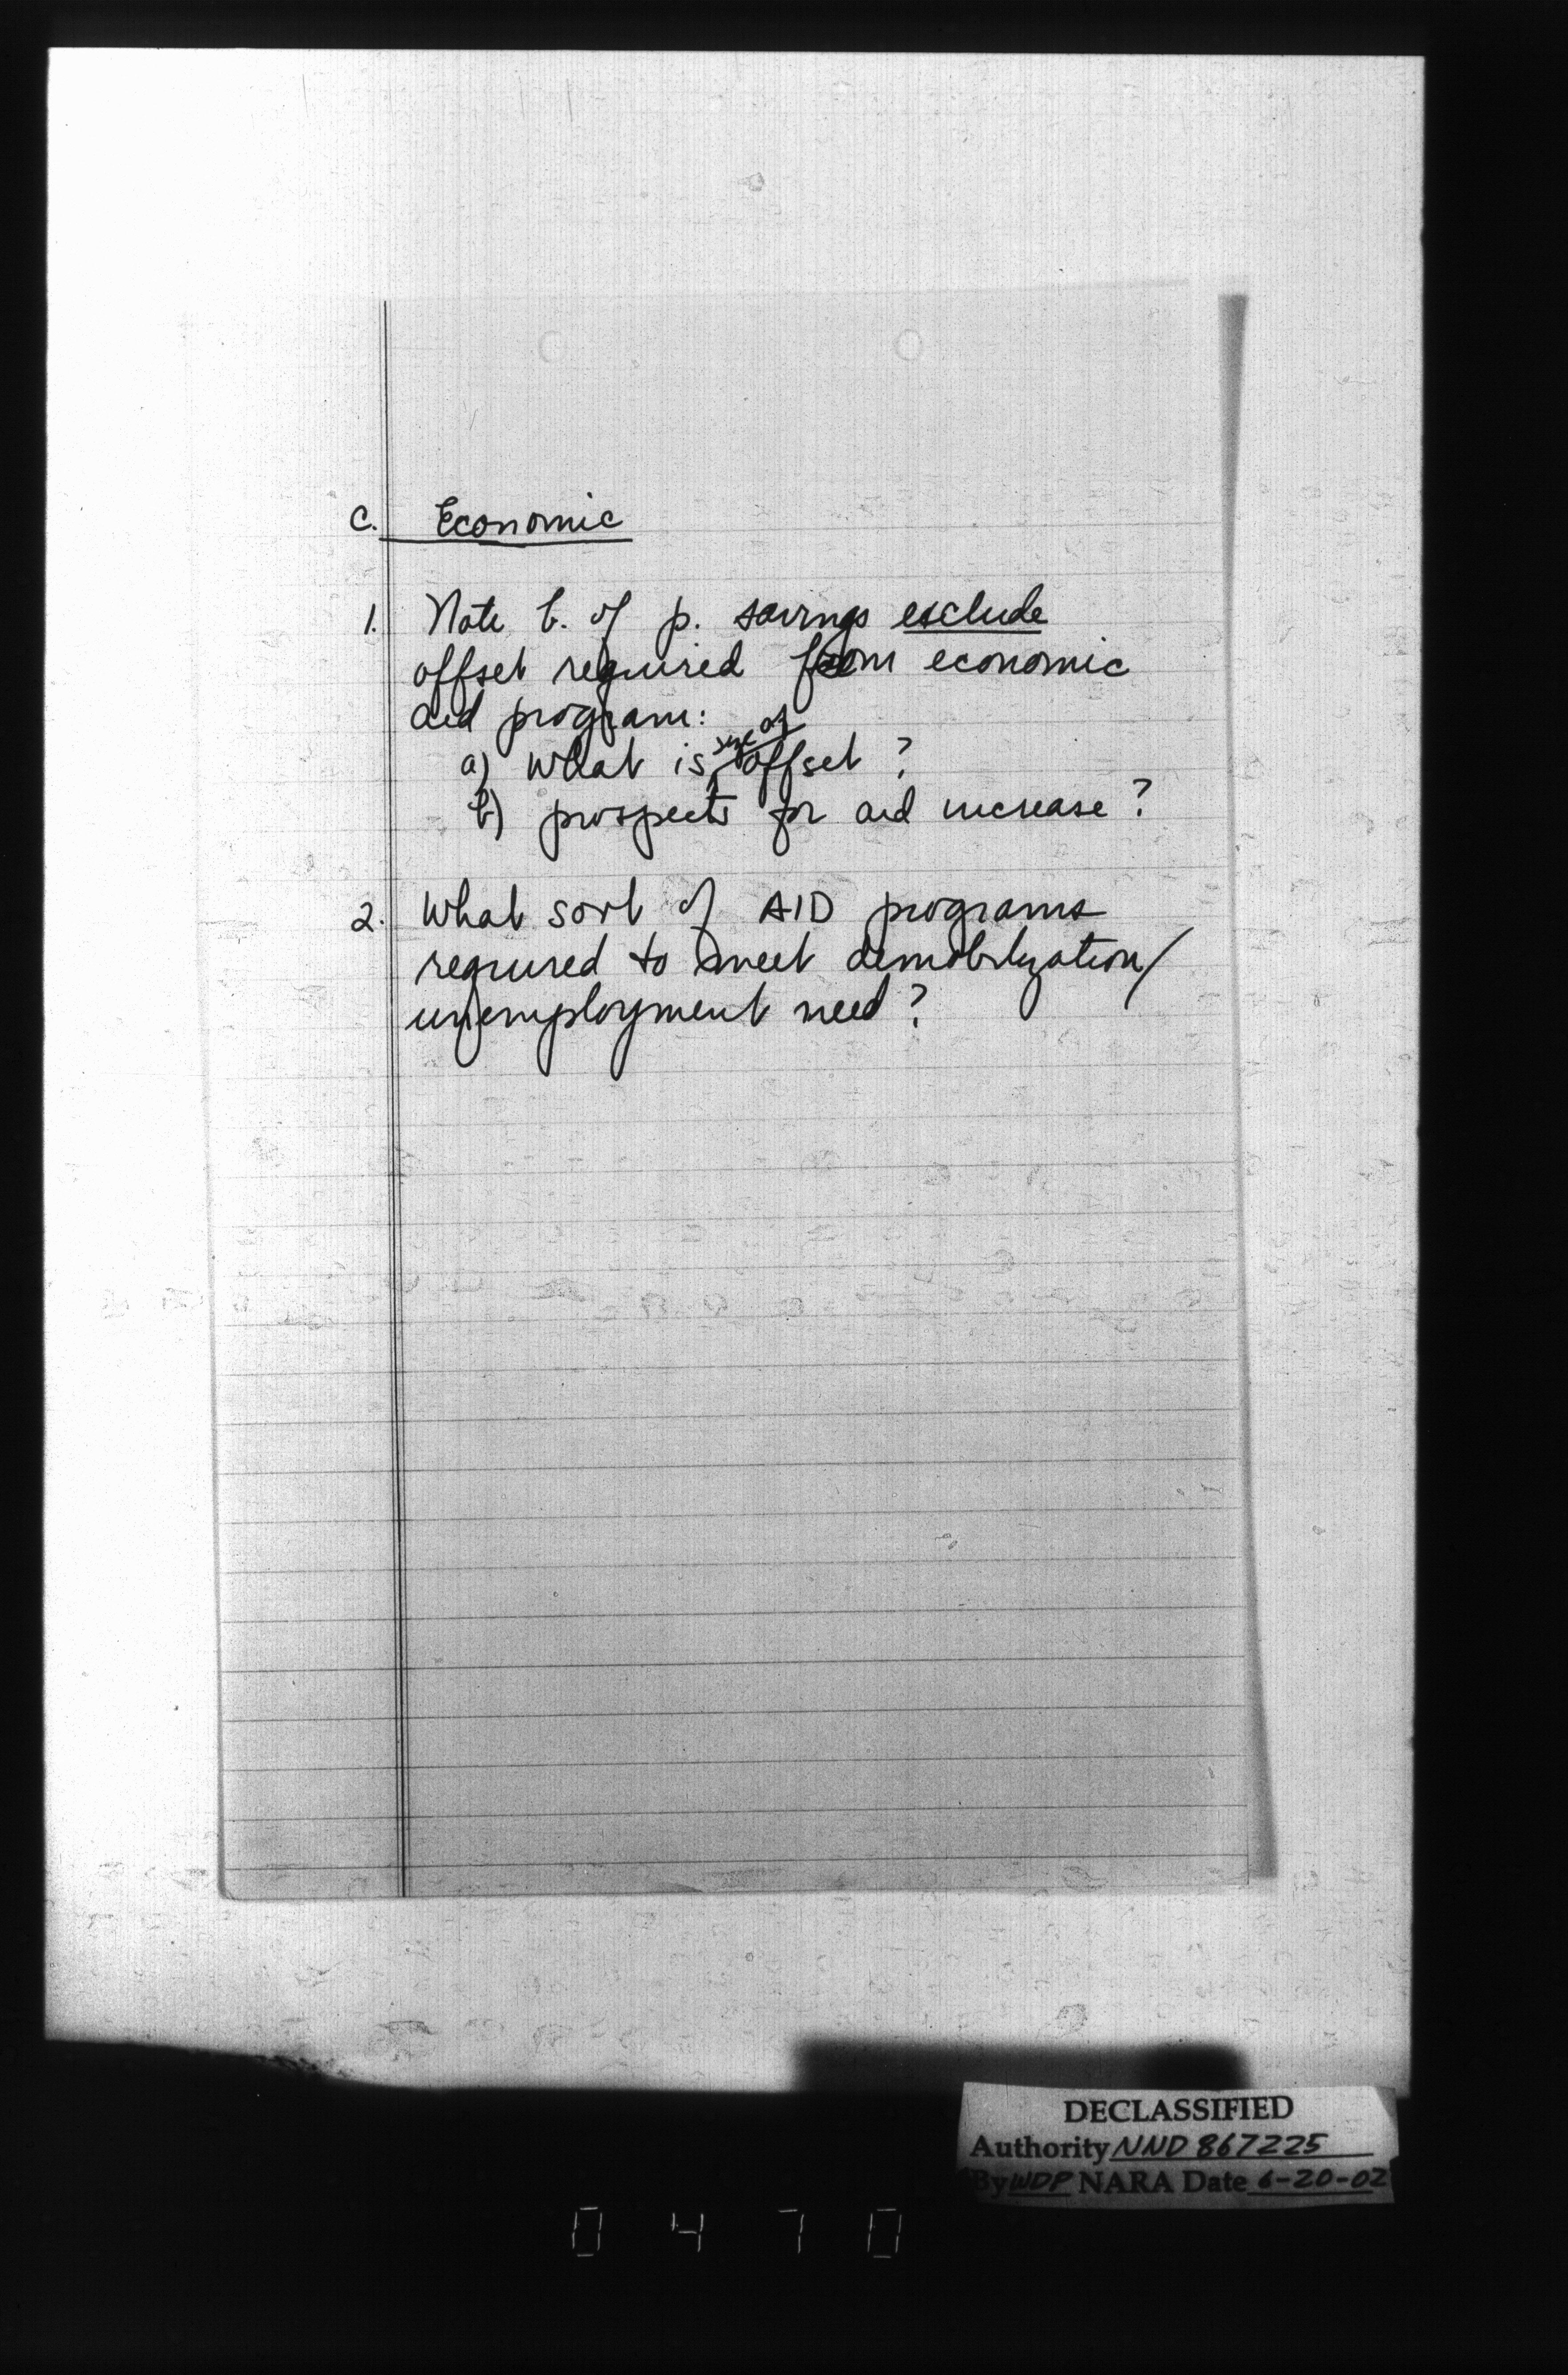 C. Economic
1. Note b. of p. savings exclude
offset required from economic
aid program:
size of
a) What is offset ?
b) prospects for aid increase ?
2. What sort of AID programs
required to meet demobilization/
unemployment need ?
DECLASSIFIED
Authority NND 867225
By WDP NARA Date 6-20-02
0470